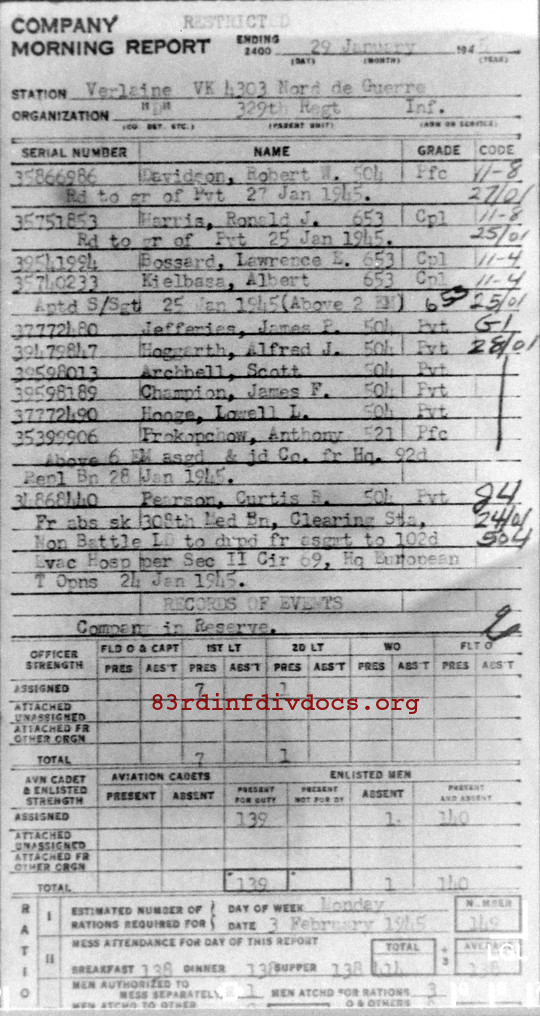 COMPANY
MORNING REPORT
RESTRICTED
ENDING
2400 29 January 194
(DAY) (MONTH) (YEAR)
STATION Verlaine VK 4303 Nord de Guerre
ORGANIZATION "D" 329th Regt Inf.
(CO. DET. ETC.) (PARENT UNIT) (ARM OR SERVICE)
SERIAL NUMBER NAME GRADE CODE
35866986 Davidson, Robert W. 504 Pfc 11-8
Rd to gr of Pvt 27 Jan 1945. 27/01
35751853 Harris, Ronald J. 653 Cpl 11-8
Rd to gr of Pvt 25 Jan 1945. 25/01
39541994 Bossard, Lawrence E. 653 Cpl 11-4
35740233 Kielbasa, Albert 653 Cpl 11-4
Aptd S/Sgt 25 Jan 1945(Above 2 EM) 653 25/01
37772480 Jefferies, James P. 504 Pvt G1
39479847 Hoggarth, Alfred J. 504 Pvt 28/01
39598013 Archbell, Scott 504 Pvt
39598189 Champion, James F. 504 Pvt
37772490 Hooge, Lowell L. 504 Pvt
35399906 Prokopchow, Anthony 521 Pfc
Above 6 EM asgd & jd Co. fr Hq. 92d
Repl Bn 28 Jan 1945.
34868440 Pearson, Curtis R. 504 Pvt J4
Fr abs sk 308th Med Bn, Clearing Sta, 24/01
Non Battle LD to drpd fr asgmt to 102d 504
Evac Hosp per Sec II Cir 69, Hq European
T Opns 24 Jan 1945.
RECORDS OF EVENTS
Company in Reserve.
OFFICER STRENGTH FLD O & CAPT 1ST LT 2D LT WO FLT O
PRES ABS'T PRES ABS'T PRES ABS'T PRES ABS'T PRES ABS'T
ASSIGNED 7 1
ATTACHED UNASSIGNED
ATTACHED FR OTHER ORGN
TOTAL 7 1
83rdinfdivdocs.org
AVN CADET & ENLISTED STRENGTH AVIATION CADETS ENLISTED MEN
PRESENT ABSENT PRESENT FOR DUTY PRESENT NOT FOR DY ABSENT PRESENT AND ABSENT
ASSIGNED 139 1 140
ATTACHED UNASSIGNED
ATTACHED FR OTHER ORGN
TOTAL 139 1 140
RATIO
I ESTIMATED NUMBER OF RATIONS REQUIRED FOR DAY OF WEEK Monday NUMBER
DATE 3 February 1945 149
II MESS ATTENDANCE FOR DAY OF THIS REPORT TOTAL ÷ 3 AVERAGE
BREAKFAST 138 DINNER 138 SUPPER 138 414 138
MEN AUTHORIZED TO MESS SEPARATELY 1 MEN ATCHD FOR RATIONS 3
MEN ATCHD TO OTHER O & OTHERS